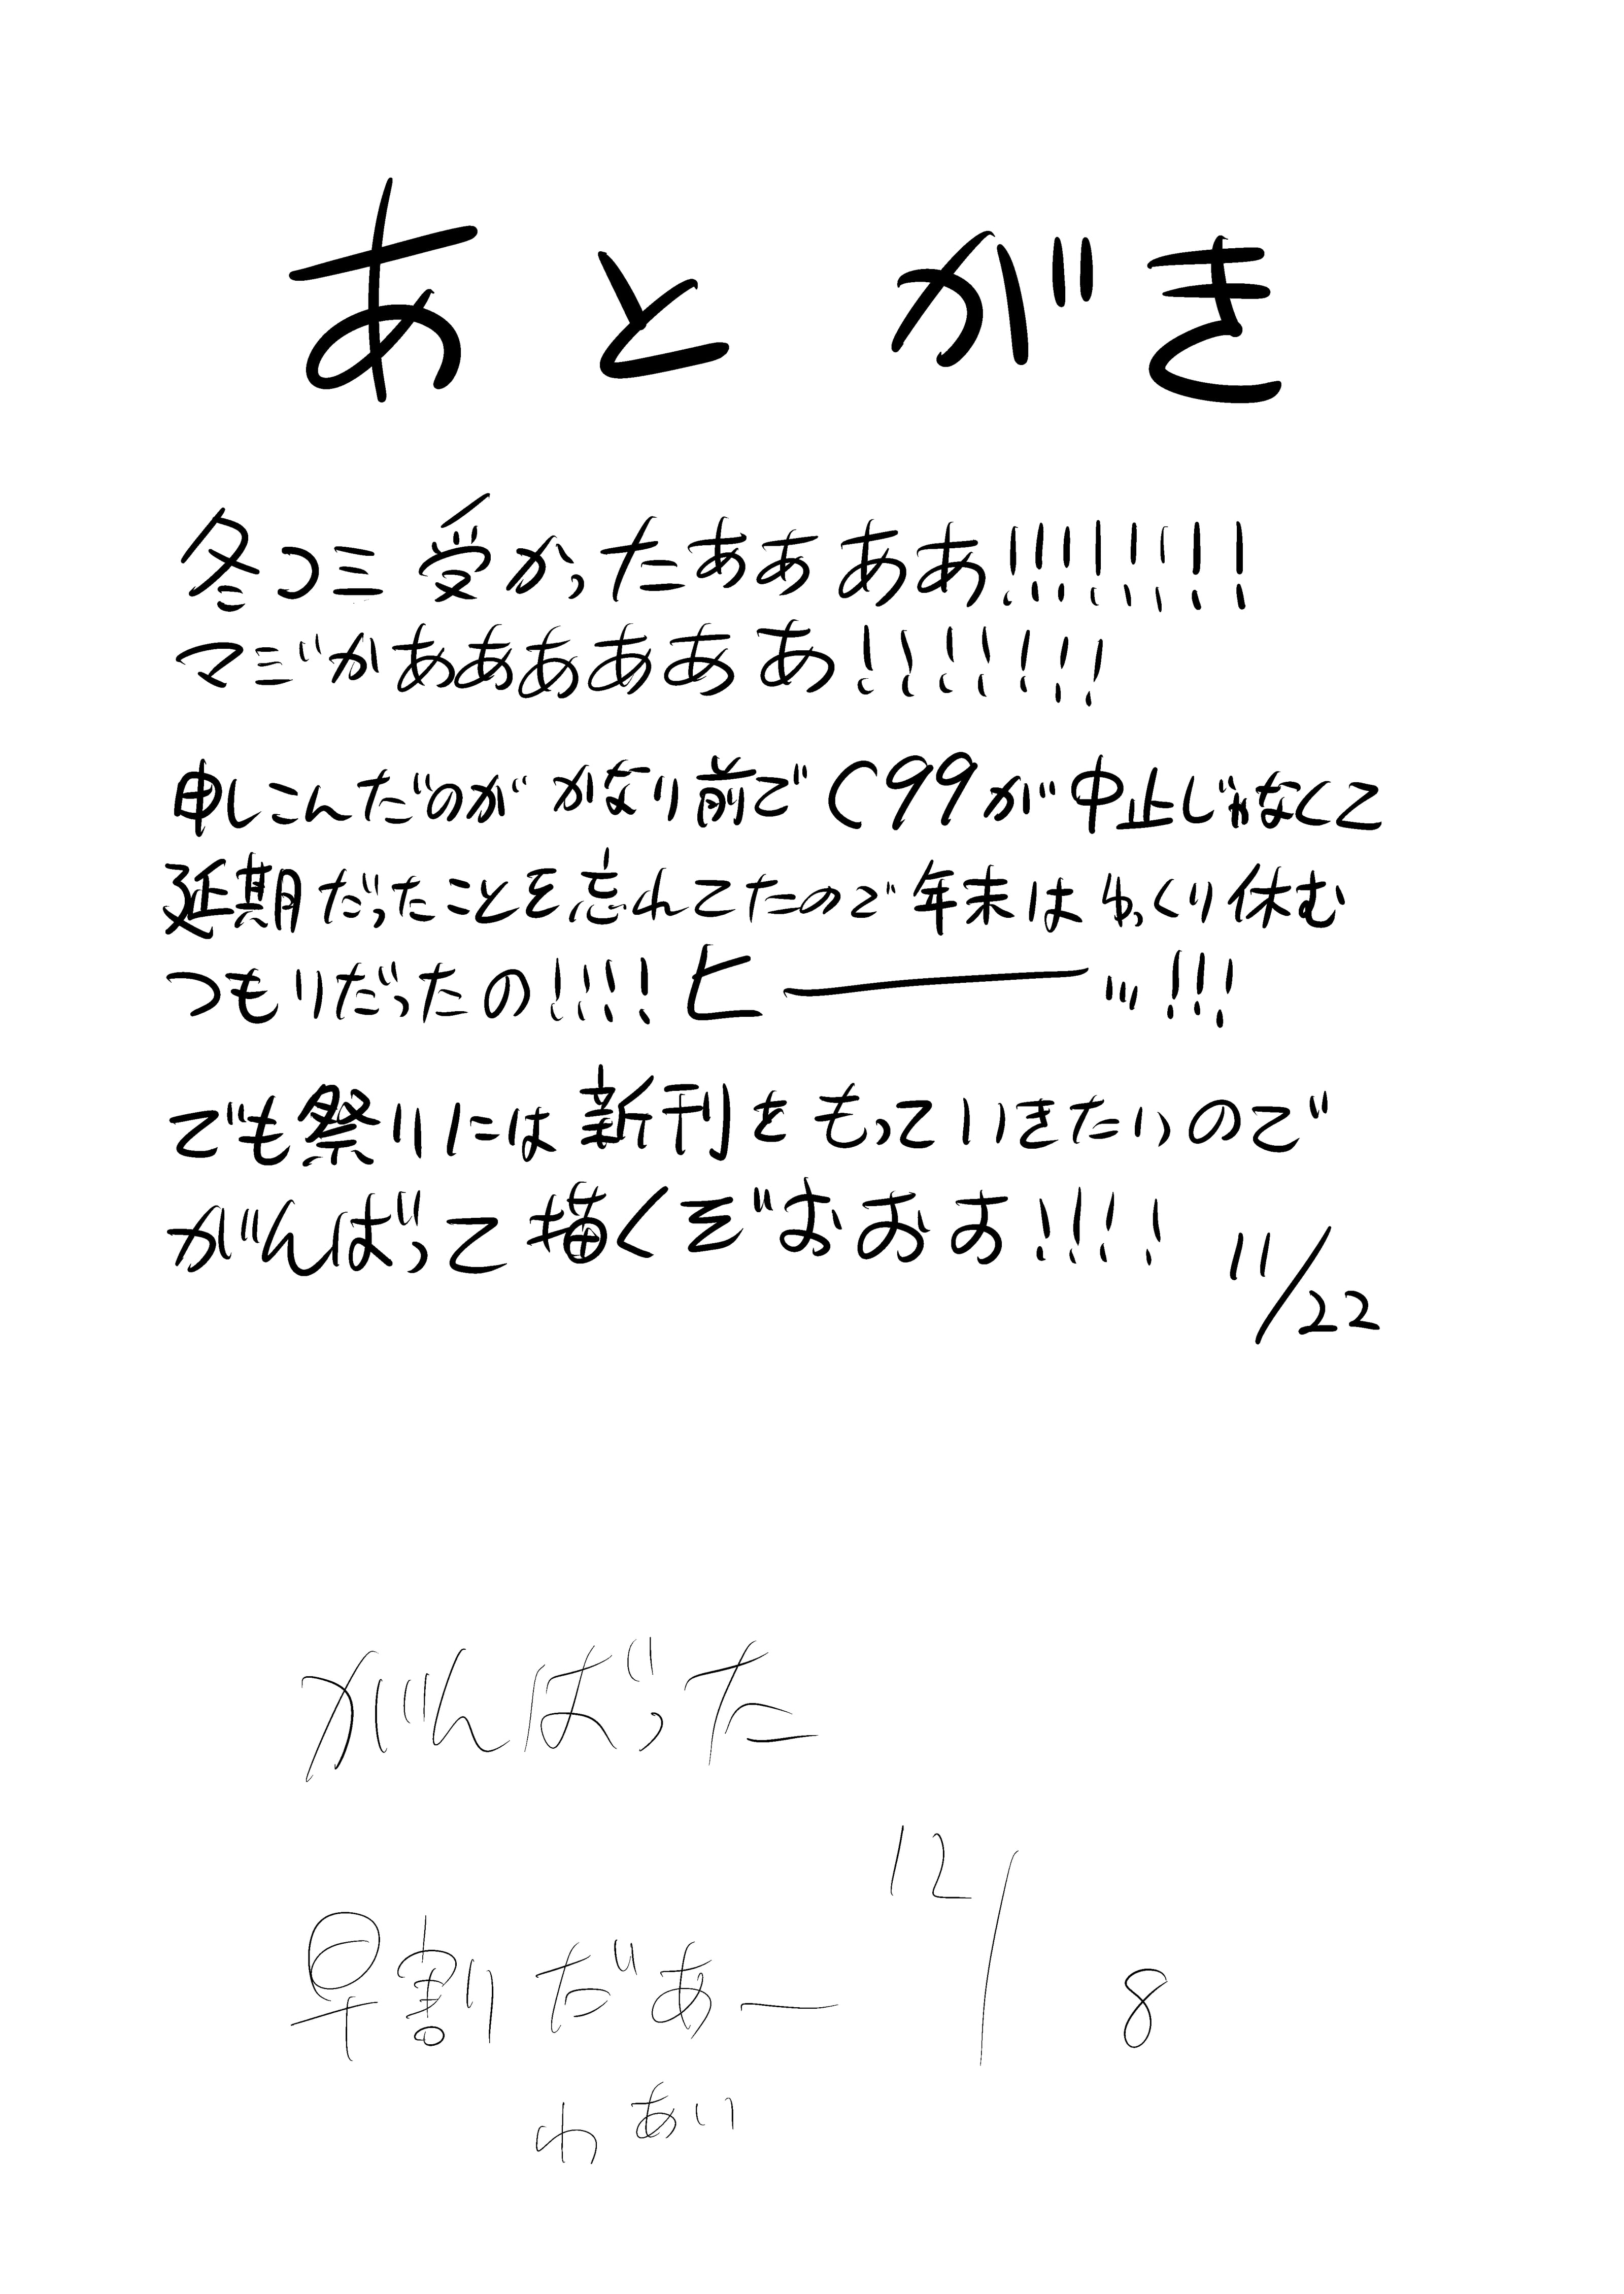 あとがき
冬コミ受かったぁぁああ!!!!!!!!
マジかああああああ!!!!!!!
申しこんだのがかなり前でC99が中止じゃなくて
延期だったことを忘れてたので年末はゆっくり休む
つもりだったの!!!!ヒーーッ!!!
でも祭りには新刊をもっていきたいので
がんばって描くぞおおお!!!!
11/22
がんばった
12/8
早割だあー
わあい